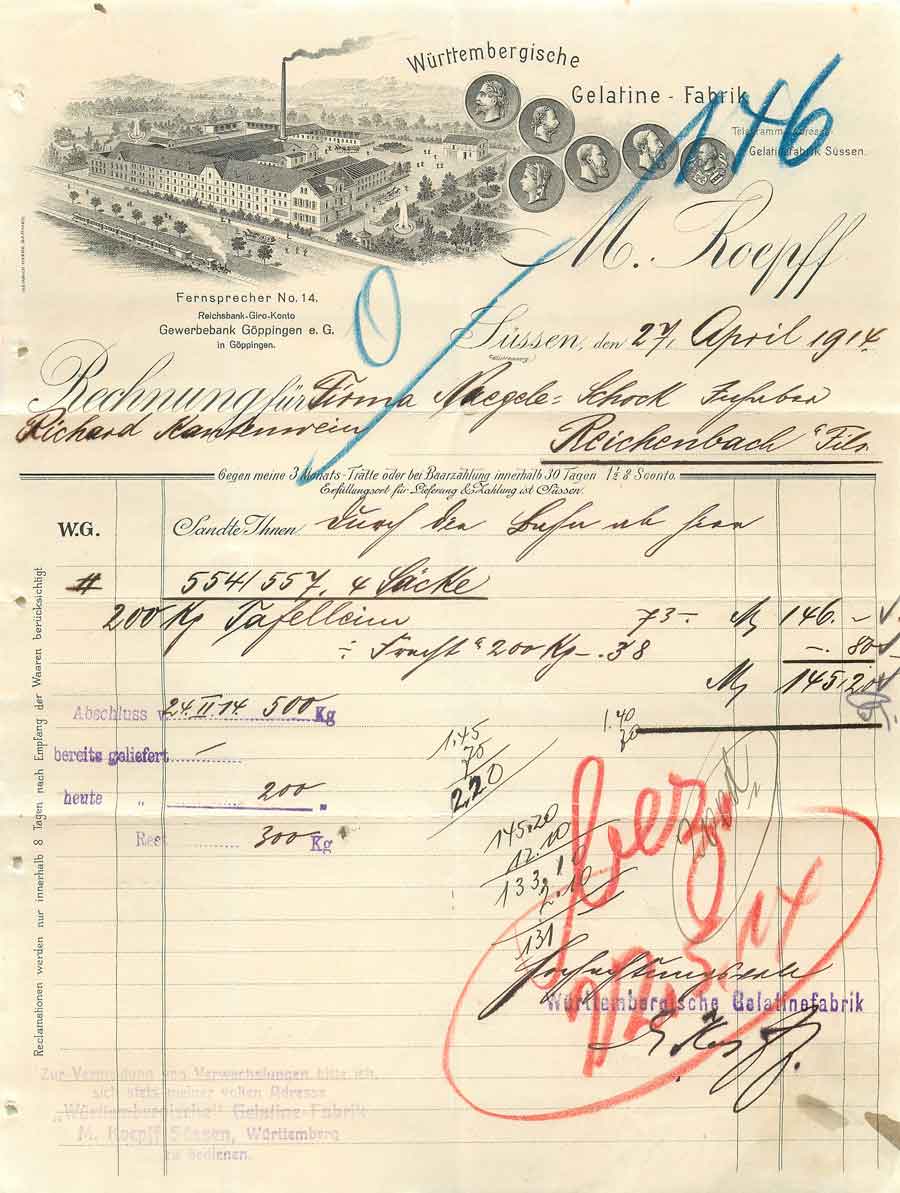 Württembergische
Gelatine - Fabrik
146
Telegramm-Adresse
Gelatinefabrik Süssen.
M. Koepff
Fernsprecher No. 14.
Reichsbank-Giro-Konto
Gewerbebank Göppingen e. G.
in Göppingen.
0
Süssen, den 27. April 1914
(Württemberg)
Rechnung für Firma Naegele-Schock
Richard Kantenwein
Reichenbach a/Fils.
Gegen meine 3 Monats-Tratte oder bei Baarzahlung innerhalb 30 Tagen 1½ % Sconto.
Erfüllungsort für Lieferung & Zahlung ist Süssen.
W.G. Sandte Ihnen durch die Bahn ab hier
# 554/557, 4 Säcke
200 Kg Tafelleim 73.- M 146. -
÷ Fracht a 200 Kg -.38 -. 80
M 145.20
Abschluss v. 24.II.14 500 Kg
1.40
70
bereits geliefert -
1.45
75
2.20
heute " 200 "
Rest 300 Kg
145.20
12.10
133.10
2.10
131
14
Hochachtungsvoll
Württembergische Gelatinefabrik
Reclamationen werden nur innerhalb 8 Tagen nach Empfang der Waaren berücksichtigt.
Zur Vermeidung von Verwechslungen bitte ich,
sich stets meiner vollen Adresse
„Württembergische" Gelatine-Fabrik
M. Koepff Süssen, Württemberg
zu bedienen.